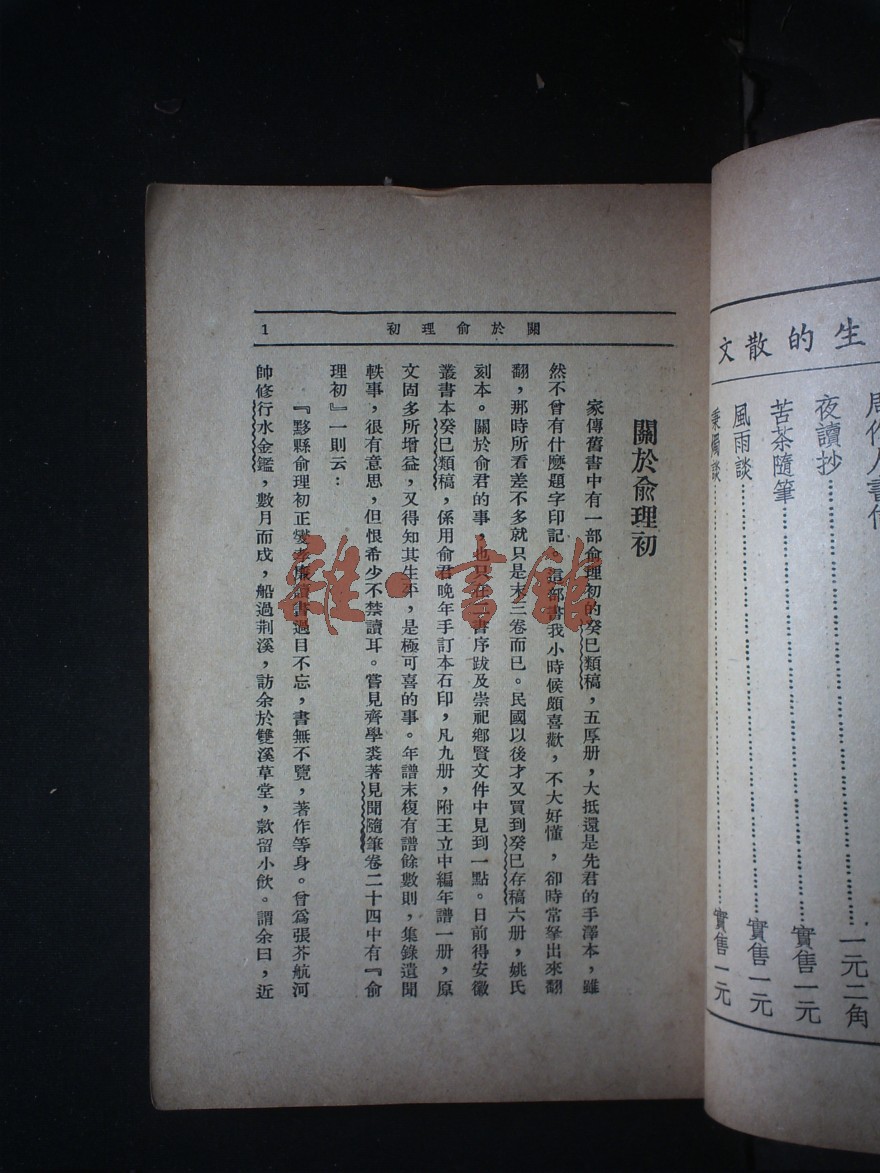 生的散文
周作人書信
一元二角
夜讀抄
實售一元
苦茶隨筆
實售一元
風雨談
實售一元
秉燭談
關於俞理初
1
關於俞理初
家傳舊書中有一部俞理初的癸巳類稿，五厚册，大抵還是先君的手澤本，雖
然不曾有什麼題字印記。這部書我小時候頗喜歡，不大好懂，卻時常拏出來翻
翻，那時所看差不多就只是末三卷而已。民國以後才又買到癸巳存稿六册，姚氏
刻本。關於俞君的事，也只在二書序跋及崇祀鄉賢文件中見到一點。日前得安徽
叢書本癸巳類稿，係用俞君晚年手訂本石印，凡九册，附王立中編年譜一册，原
文固多所增益，又得知其生平，是極可喜的事。年譜末復有譜餘數則，集錄遺聞
軼事，很有意思，但恨希少不禁讀耳。嘗見齊學裘著見聞隨筆卷二十四中有『俞
理初』一則云：
『黟縣俞理初正燮孝廉讀書過目不忘，書無不覽，著作等身。曾爲張芥航河
帥修行水金鑑，數月而成，船過荆溪，訪余於雙溪草堂，欵留小飲。謂余曰，近
雜·書館